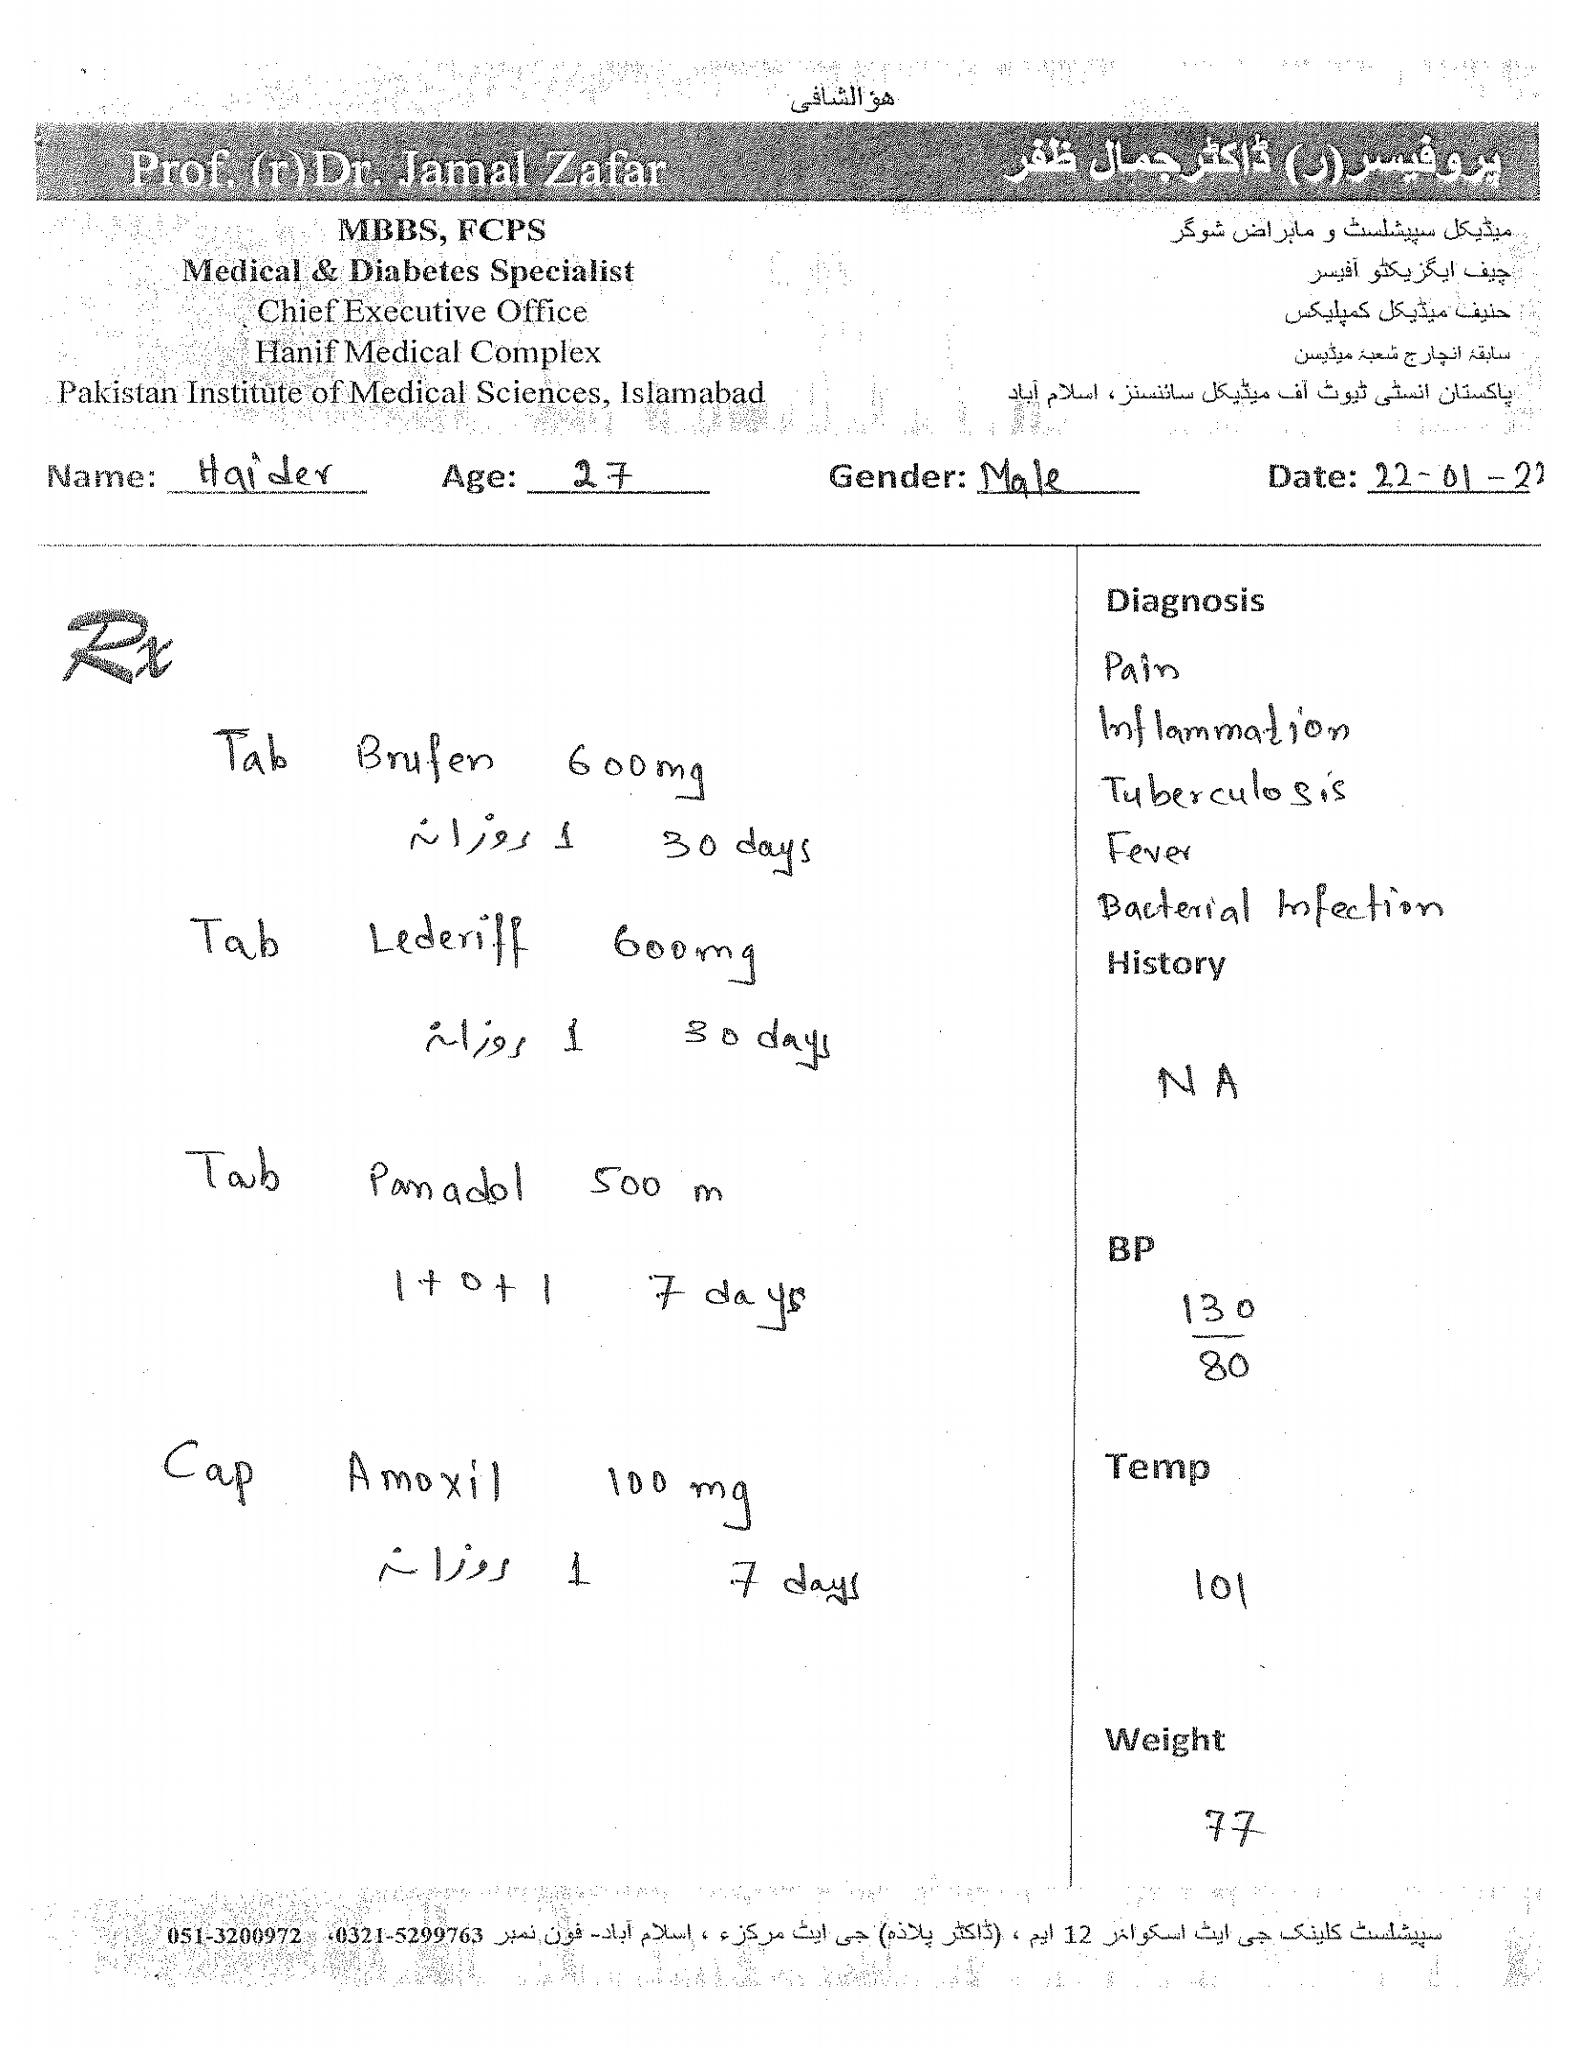 هو الشافی
Prof. (r) Dr. Jamal Zafar
پروفیسر (ر) ڈاکٹر جمال ظفر
MBBS, FCPS
میڈیکل سپیشلسٹ و ماہراض شوگر
Medical & Diabetes Specialist
چیف ایگزیکٹو آفیسر
Chief Executive Office
حنیف میڈیکل کمپلیکس
Hanif Medical Complex
سابقہ انچارج شعبہ میڈیسن
Pakistan Institute of Medical Sciences, Islamabad
پاکستان انسٹی ٹیوٹ آف میڈیکل سائنسز، اسلام آباد
Name: Haider Age: 27 Gender: Male Date: 22-01-22
Rx
Tab Brufen 600mg
1 روزانہ 30 days
Tab Lederiff 600mg
1 روزانہ 30 days
Tab Panadol 500 m
1+0+1 7 days
Cap Amoxil 100 mg
1 روزانہ 7 days
Diagnosis
Pain
Inflammation
Tuberculosis
Fever
Bacterial Infection
History
NA
BP
130
80
Temp
101
Weight
77
سپیشلسٹ کلینک جی ایٹ اسکوائر 12 ایم ، (ڈاکٹر پلاذہ) جی ایٹ مرکزء ، اسلام آباد- فون نمبر 0321-5299763، 051-3200972